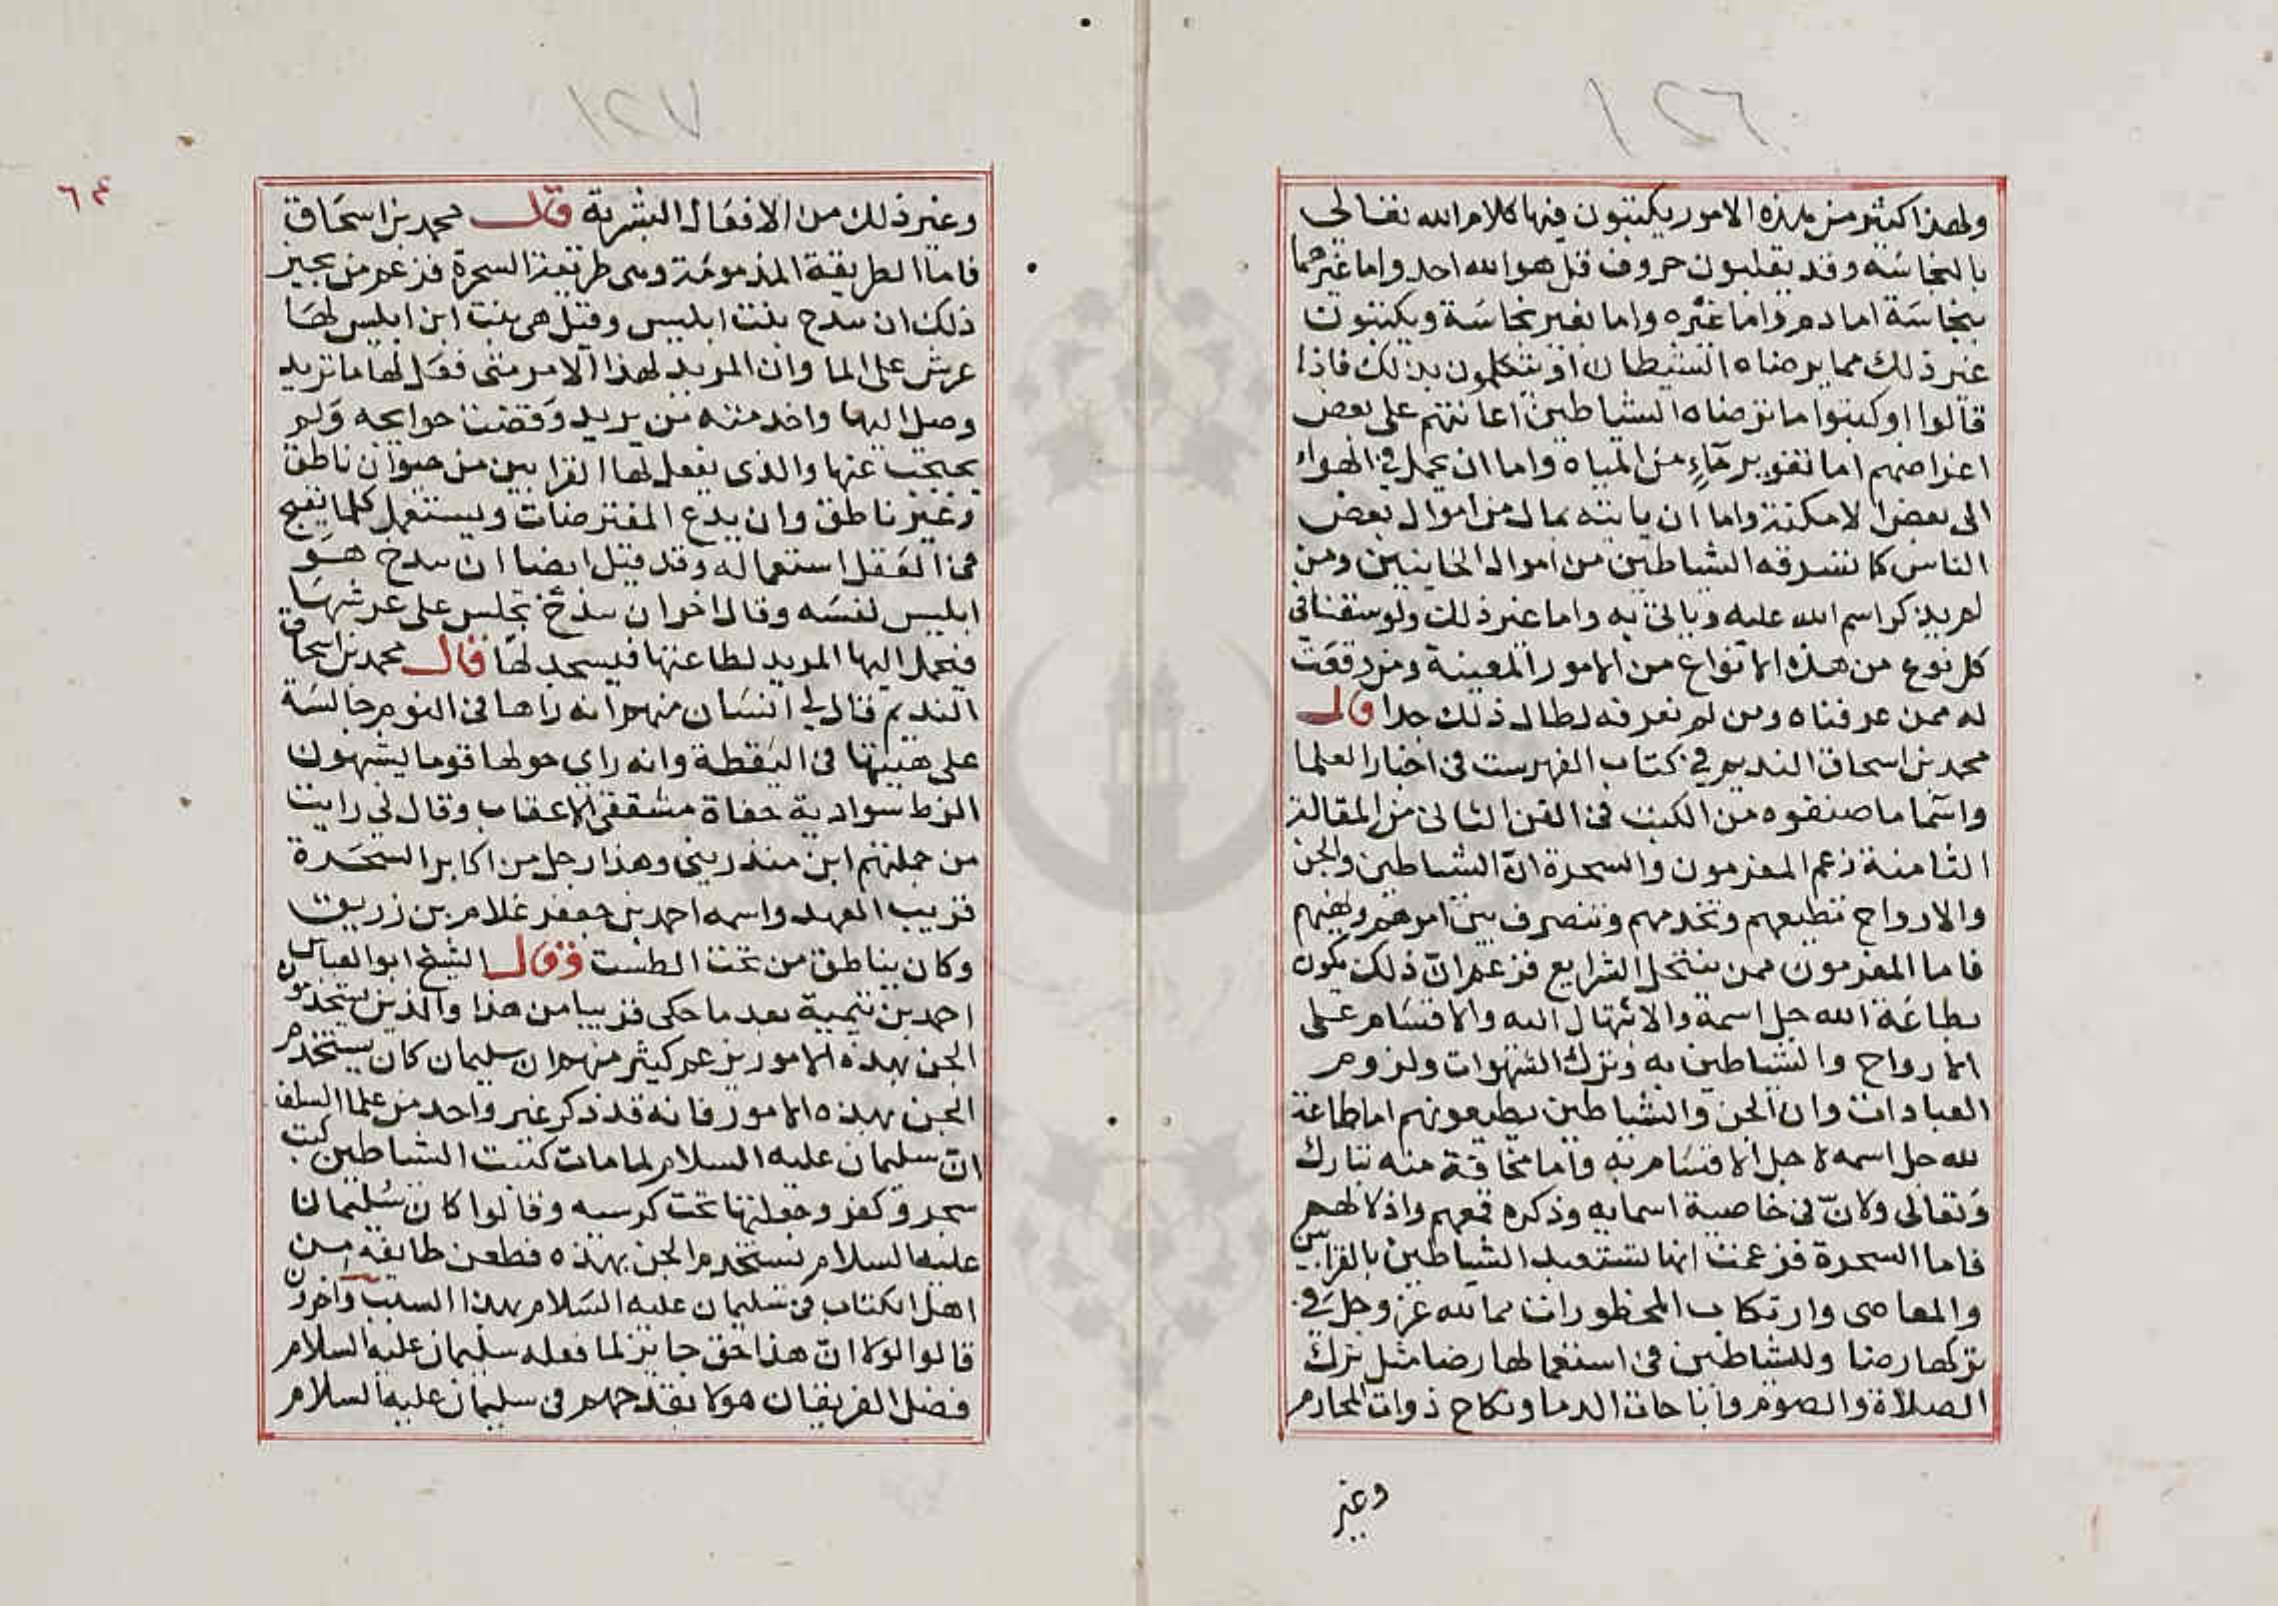 ١٢٦
ولهذا كثير من هذه الامور يكتبون فيها كلام الله تعالى
بالنجاسة وقد يقلبون حروف قل هو الله احد واما غيرهما
بنجاسة اما دم واما غيره واما بغير نجاسة ويكتبون
غير ذلك مما يرضاه الشيطان او يتكلمون بذلك فاذا
قالوا او كتبوا ما ترضاه الشياطين اعانتهم على بعض
اغراضهم اما تغوير ماءٍ من المياه واما ان يحمل في الهواء
الى بعض الامكنة واما ان ياتيه بمال من اموال بعض
الناس كما تسرقه الشياطين من اموال الخاينين ومن
لم يذكر اسم الله عليه وياتي به واما غير ذلك ولو سقنا في
كل نوع من هذه الانواع من الامور المعينة ومن وقعت
له ممن عرفناه ومن لم نعرفه لطال ذلك جدا قال
محمد بن اسحاق النديم في كتاب الفهرست في اخبار العلما
واسما ما صنفوه من الكتب في الفن الثاني من المقالة
الثامنة زعم المعزمون والسحرة انّ الشياطين والجن
والارواح تطيعهم وتخدمهم وتتصرف بين امرهم ونهيهم
فاما المعزمون ممن ينتحل الشرايع فزعم انّ ذلك يكون
بطاعة الله جل اسمه والابتهال اليه والاقسام على
الارواح والشياطين به وترك الشهوات ولزوم
العبادات وان الجن والشياطين يطيعونهم اما طاعة
لله جل اسمه لاجل الاقسام به واما مخافة منه تبارك
وتعالى ولانّ في خاصية اسمايه وذكره قمعهم واذلالهم
فاما السحرة فزعمت انها تستعبد الشياطين بالقرابين
والمعاصي وارتكاب المحظورات مما لله عز وجل في
تركها رضا وللشياطين في استعمالها رضا مثل ترك
الصلاة والصوم واباحات الدما ونكاح ذوات المحارم
وغير
١٢٧
٦٤
وغير ذلك من الافعال البشرية قال محمد بن اسحاق
فاما الطريقة المذمومة وهي طريقة السحرة فزعم من يجيز
ذلك ان بيدح بنت ابليس وقيل هي بنت ابن ابليس لها
عرش على الما وان المريد لهذا الامر متى فعل لها ما تريد
وصل اليها واخدمته من يريد وقضت حوايجه ولم
يحتجب عنها والذي يفعل لها القرابين من حيوان ناطق
وغير ناطق وان يدع المفترضات ويستعمل كلما يقبح
في العقل استعماله وقد قيل ايضا ان بيدخ هو
ابليس نفسه وقال اخر ان بيدخ تجلس على عرشها
فيحمل اليها المريد لطاعتها فيسجد لها قال محمد بن اسحاق
النديم قال لي انسان منهم انه راها في النوم جالسة
على هيئتها في اليقظة وانه راي حولها قوما يشبهون
الزط سوادية حفاة مشققي الاعقاب وقال لي رايت
من جملتهم ابن منذريني وهذا رجل من اكابر السحرة
قريب العهد واسمه احمد بن جعفر غلام بن زريق
وكان يناطق من تحت الطست وقال الشيخ ابو العباس
احمد بن تيمية بعد ما حكى قريبا من هذا والذين يستخدمون
الجن بهذه الامور يزعم كثير منهم ان سليمان كان يستخدم
الجن بهذه الامور فانه قد ذكر غير واحد من علما السلف
انّ سليمان عليه السلام لما مات كتبت الشياطين كتب
سحر وكفر وجعلتها تحت كرسيه وقالوا كان سليمان
عليه السلام يستخدم الجن بهذه فطعن طايفة من
اهل الكتاب في سليمان عليه السلام بهذا السبب واخرون
قالوا لولا انّ هذا حق جايز لما فعله سليمان عليه السلام
فضل الفريقان هولا بقدحهم في سليمان عليه السلام